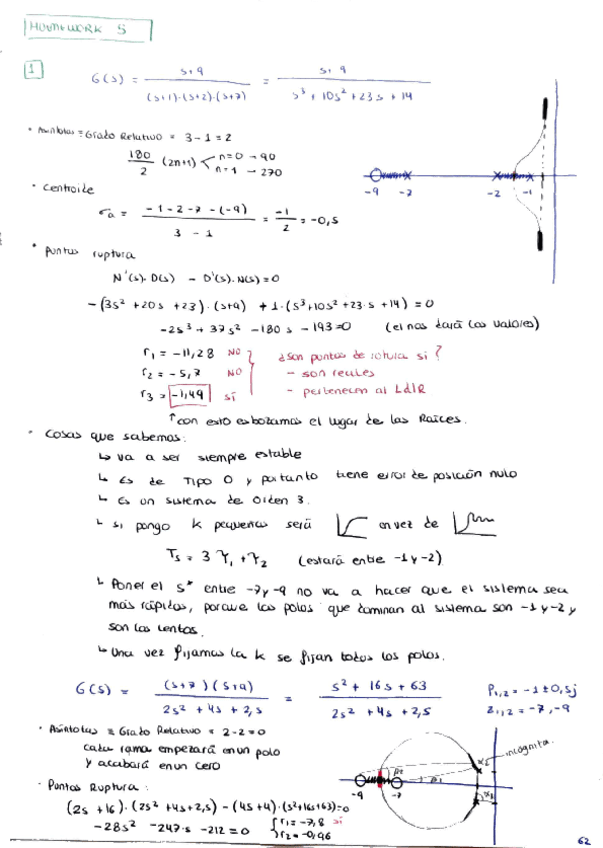 HOMEWORK 5
1
G(s) = s+9 / (s+1)·(s+2)·(s+7) = s+9 / s³ + 10s² + 23s + 14
• Asíntotas ≡ Grado Relativo = 3-1 = 2
180/2 (2n+1) n=0 → 90
n=1 → 270
-9 -7 -2 -1
• Centroide
σa = -1-2-7-(-9) / 3-1 = -1/2 = -0,5
• Puntos ruptura
N'(s)·D(s) - D'(s)·N(s) = 0
-(3s² + 20s + 23)·(s+9) + 1·(s³+10s²+23·s+14) = 0
-2s³ + 37s² - 180s - 193 = 0 (el nos dará los valores)
r₁ = -11,28 NO ¿Son puntos de rotura si?
r₂ = -5,7 NO - son reales
r₃ = -1,49 sí - pertenecen al LdlR
↑ con esto esbozamos el lugar de las Raíces.
• Cosas que sabemos:
↳ va a ser siempre estable
↳ Es de Tipo 0 y por tanto tiene error de posición nulo
↳ Es un sistema de orden 3.
↳ si pongo k pequeñas será en vez de
Ts = 3 τ₁ + τ₂ (estará entre -1 y -2)
↳ Poner el s* entre -7 y -9 no va a hacer que el sistema sea
más rápidos, porque los polos que dominan al sistema son -1 y -2 y
son los lentos.
↳ Una vez fijamos la k se fijan todos los polos.
G(s) = (s+7)(s+9) / 2s² + 4s + 2,5 = s² + 16s + 63 / 2s² + 4s + 2,5 P₁,₂ = -1 ± 0,5j
Z₁,₂ = -7, -9
• Asíntotas ≡ Grado Relativo = 2-2 = 0
cada rama empezará en un polo
y acabará en un cero
incógnita
-9 -7
• Puntos Ruptura:
(2s + 16)·(2s² + 4s + 2,5) - (4s + 4)·(s² + 16s + 63) = 0
-28s² - 247·s - 212 = 0 r₁ = -7,8 sí
r₂ = -0,96
62